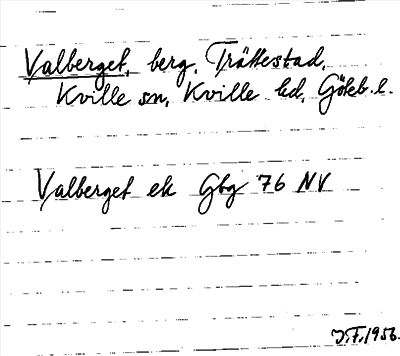 Valberget, berg, Trättestad,
Kville sn, Kville hd, Göteb. l.
Valberget ek Gbg 76 NV
J.F. 1956.